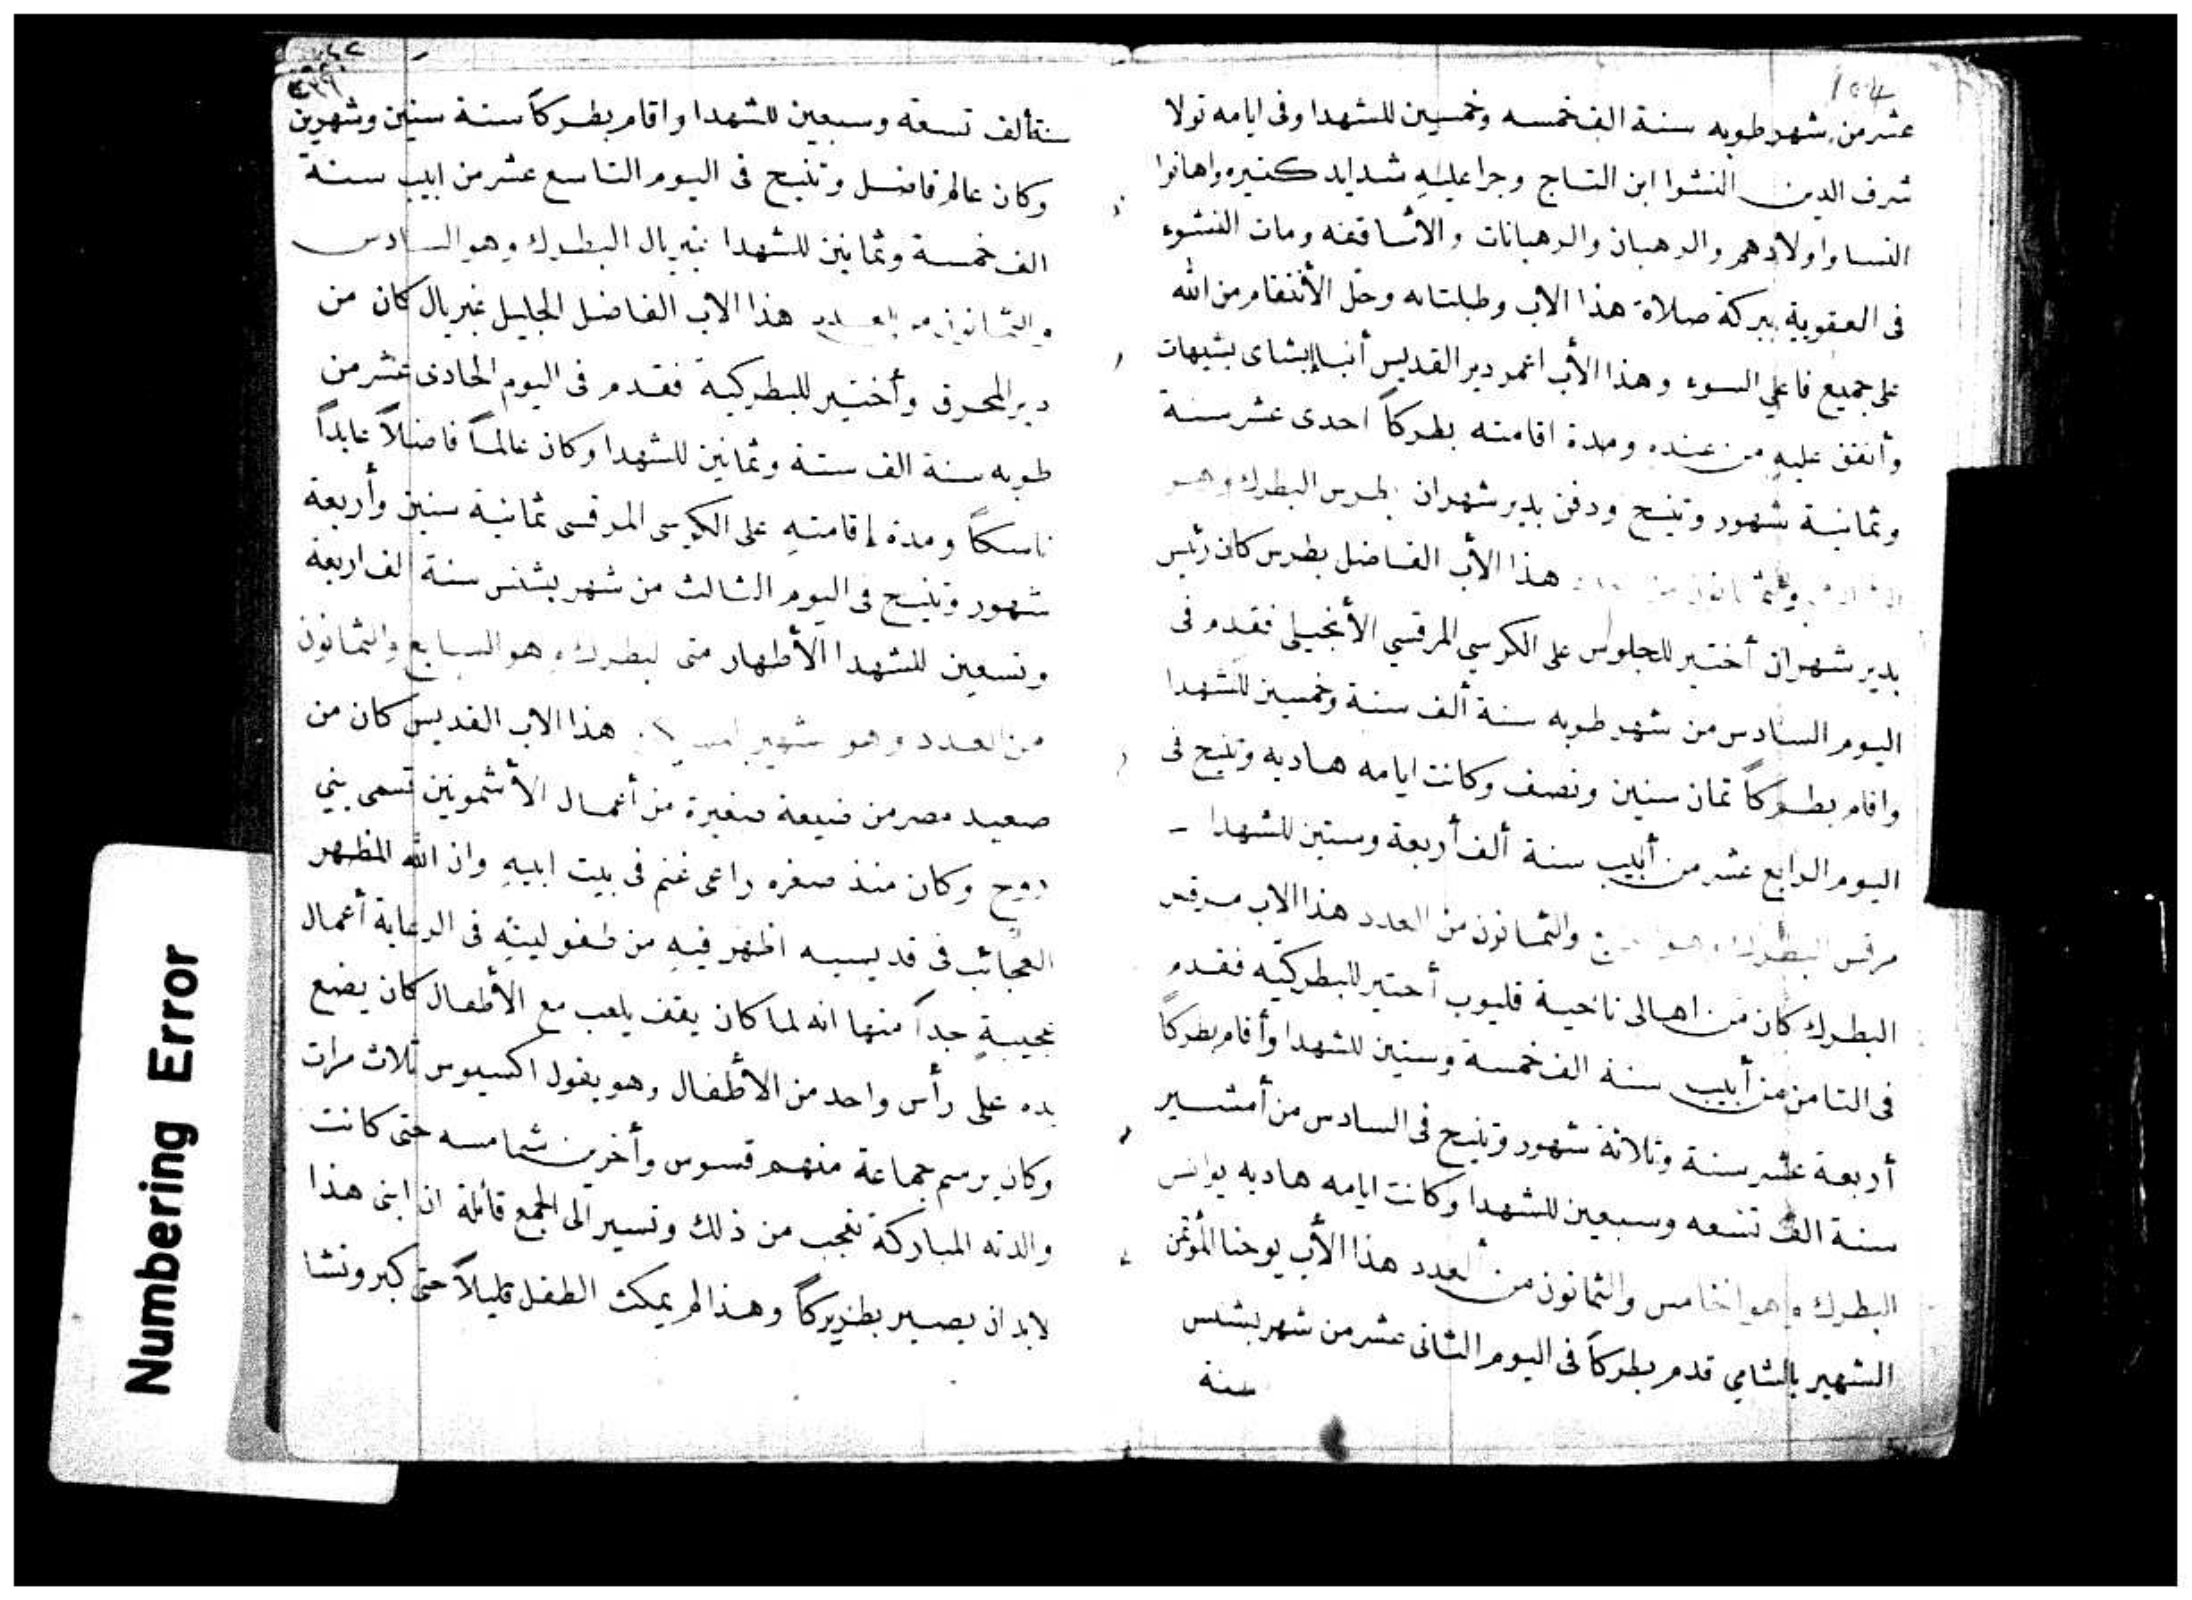 عشر من شهر طوبه سنة الف خمسه وخمسين للشهدا وفى ايامه تولا
شرف الدين النشوا ابن التاج وجرا عليهِ شدايد كثيره واهانوا
النسا واولادهم والرهبان والرهبانات والاثاقفه ومات النشوء
فى العقوبية ببركة صلاة هذا الاب وطلبتاه وحل الأنتقام من الله
على جميع فاعلي السوء وهذا الأب اعمر دير القديس أنبا إبشاى بشيهات
وأنفق عليهِ من عنده ومدة اقامته بطركاً احدى عشر سنة
وثمانية شهور وتنيح ودفن بدير شهران بطرس البطرك وهو
والثمانون من هذا الأب الفاضل بطرس كان رئيس
بدير شهران أختير للجلوس على الكرسي المرقسي الأنجيلى فقدم فى
اليوم السادس من شهر طوبه سنة ألف ستة وخمسين للشهدا
واقام بطركاً ثمان سنين ونصف وكانت ايامه هاديه وتنيح فى
اليوم الرابع عشر من أبيب سنة ألف أربعة وستين للشهدا
مرقس البطرك وهو الرابع والثمانون من العدد هذا الاب مرقس
البطرك كان من اهالى ناحية قليوب أختير للبطركيه فقدم
فى الثامن من أبيب سنة الف خمسة وستين للشهدا وأقام بطركاً
أربعة عشر سنة وثلاثة شهور وتنيح فى السادس من أمشير
سنة الف تسعه وسبعين للشهدا وكانت ايامه هاديه يوانس
البطرك وهو الخامس والثمانون من العدد هذا الأب يوحنا المؤتمن
الشهير بالشامي قدم بطركاً فى اليوم الثانى عشر من شهر بشنس
سنة
سنة ألف تسعة وسبعين للشهدا واقام بطركاً ستة سنين وشهرين
وكان عالم فاضل وتنيح فى اليوم التاسع عشر من ابيب سنة
الف خمسة وثمانين للشهدا غبريال البطرك وهو السادس
والثمانون من العدد هذا الاب الفاضل الجليل غبريال كان من
دير المحرق وأختير للبطركية فقدم فى اليوم الحادى عشر من
طوبه سنة الف ستة وثمانين للشهدا وكان عالماً فاضلاً عابداً
ناسكاً ومدة إقامتهِ على الكرسى المرقسى ثمانية سنين وأربعة
شهور وتنيح فى اليوم الثالث من شهر بشنس سنة الف اربعة
وتسعين للشهدا الأطهار متى البطرك وهو السابع والثمانون
من العدد وهو شهير هذا الاب القديس كان من
صعيد مصر من ضيعة صغيرة من أعمال الأشمونين تسمى بني
روح وكان منذ صغره راعى غنم فى بيت ابيهِ وان الله المظهر
العجائب فى قديسيه اظهر فيهِ من طفوليته فى الرعاية أعمال
عجيبةٍ جداً منها انه لما كان يقف يلعب مع الأطفال كان يضع
يده على رأس واحد من الأطفال وهو يقول اكسيوس ثلاث مرات
وكان يرسم جماعة منهم قسوس وأخرين شمامسه حتى كانت
والدته المباركة تعجب من ذلك وتسير الى الجمع قائلة ان ابنى هذا
لابد ان يصير بطريركاً وهذا لم يمكث الطفل قليلاً حتى كبر ونشا
Numbering Error